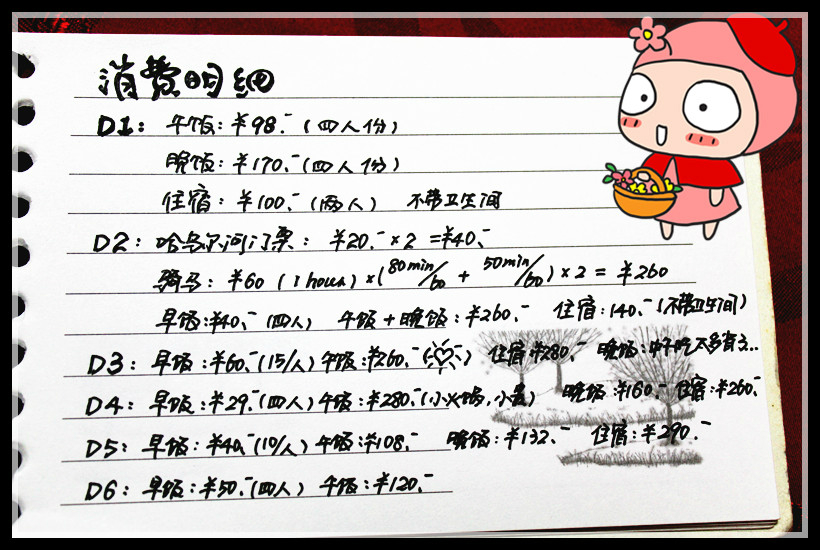 消费明细
D1: 午饭:¥98.-(四人份)
晚饭:¥170.-(四人份)
住宿:¥100.-(两人) 不带卫生间
D2: 哈乌尔河门票: ¥20.-×2 =¥40.-
骑马:¥60 (1 hour)×(80min/60 + 50min/60)×2 = ¥260
早饭:¥40.-(四人) 午饭+晚饭:¥260.- 住宿:140.-(不带卫生间)
D3: 早饭:¥60.-(15/人) 午饭:¥260.- 住宿:¥280.- 晚饭:中午吃太多有
D4: 早饭:¥29.-(四人) 午饭:¥280.-(小火锅,小 晚饭:¥160.- 住宿:¥260.-
D5: 早饭:¥40.-(10/人) 午饭:¥108.- 晚饭:¥132.- 住宿:¥290.-
D6: 早饭:¥50.-(四人) 午饭:¥120.-